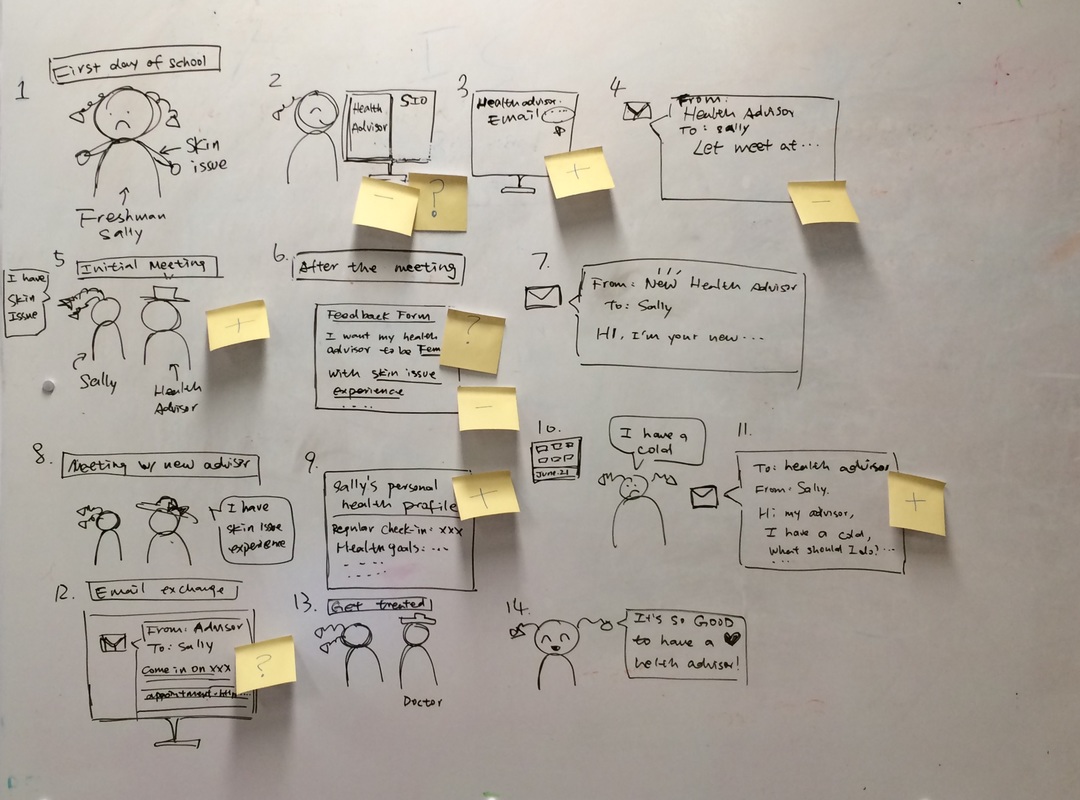 1
First day of school
Skin
issue
Freshman
Sally
2
Health
Advisor
SIO
-
?
3.
Health advisor.
Email
+
4
From:
Health Advisor
To: Sally
Let meet at...
-
5
Initial Meeting
I have
Skin
Issue
Sally
Health
Advisor
+
6.
After the meeting
Feedback Form
I want my health
advisor to be Fem
with skin issue
experience
....
?
-
7.
From: New Health Advisor
To: Sally
HI, I'm your new...
8.
Meeting w/ new advisor
I have
skin issue
experience
9.
Sally's personal
health profile
Regular check-in: xxx
Health goals: ...
+
10.
June.21
I have a
cold
11.
To: health advisor
From: Sally.
Hi my advisor,
I have a cold,
what should I do?...
...
+
12.
Email exchange
From: Advisor
To: Sally
Come in on xxx
?
13.
Get treated
Doctor
14.
It's so GOOD
to have a
helth advisor!